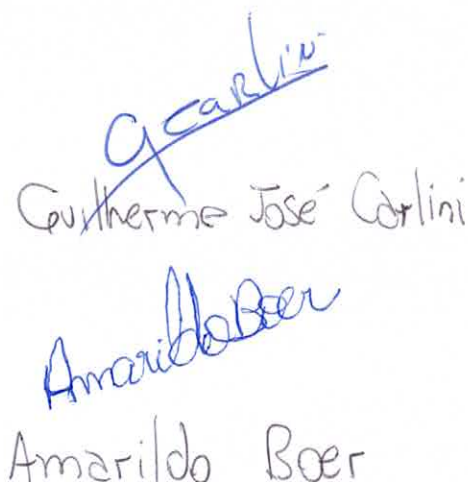 gcarlini
Guilherme José Carlini
Amarildo Boer
Amarildo Boer